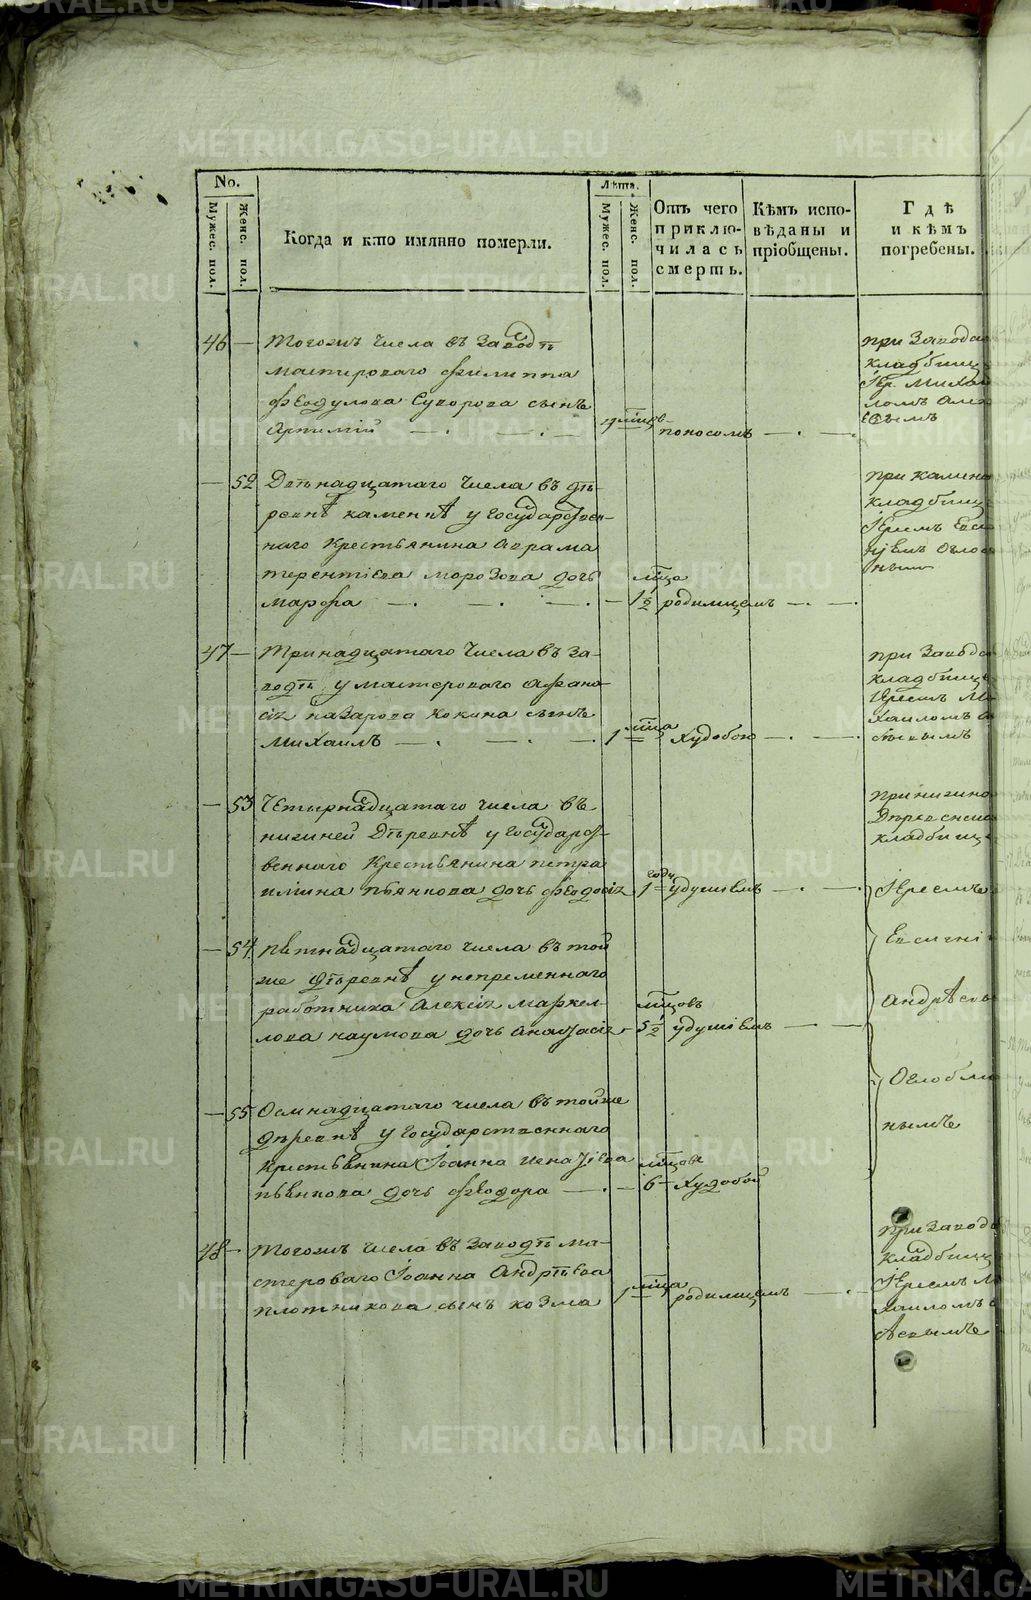 No.
Мужес. пол.
Женс. пол.
Когда и кто имянно померли.
Лѣта.
Мужес. пол.
Женс. пол.
Отъ чего
приклю-
чилась
смерть.
Кѣмъ испо-
вѣданы и
прiобщены.
Гдѣ
и кѣмъ
погребены.
46 — Тогожъ числа въ заводѣ
мастероваго Филиппа
Феодулова Суворова сынъ
мцовъ поносомъ
при завода
кладбищ
Iер. Миха
ломъ
— 52 Двѣнадцатаго числа въ дѣ-
ревнѣ каменкѣ у государствен-
наго крестьянина Аврама
терентiева морозова дочь
Марфа мца 1½ родимцемъ
при камен
кладбищ
Iереемъ Евси
нiемъ Огло
ным
47 — Тринадцатаго числа въ за-
водѣ у мастероваго Афана-
сiя Назарова Кокина сынъ
Михаилъ 1 мца худобою
при завод
кладбищ
Iереемъ Ми
хаиломъ
— 53 Четырнадцатаго числа въ
нижней деревнѣ у государст-
веннаго крестьянина петра
илiина пьянкова дочь феодосiя 1 годъ удушiемъ
при нижно
деревенско
кладбищ
Iереемъ
— 54 пятнадцатаго числа въ той
же деревнѣ у непременнаго
работника Алексiя Маркел-
лова наумова дочь Анастасiя мцовъ 5½ удушiемъ
Евсигнi
Андрѣевы
— 55 Осмнадцатаго числа въ тойже
деревнѣ у государственнаго
крестьянина Iоанна игнатiева
пьянкова дочь феодора мцовъ 6 худобой
Оглобли
нымъ
48 — Тогожъ числа въ заводѣ ма-
стероваго Iоанна Андрѣева
плотникова сынъ козма 1 мца родимцемъ
при завод
кладбищ
Iереемъ Ми
хаиломъ
METRIKI.GASO-URAL.RU